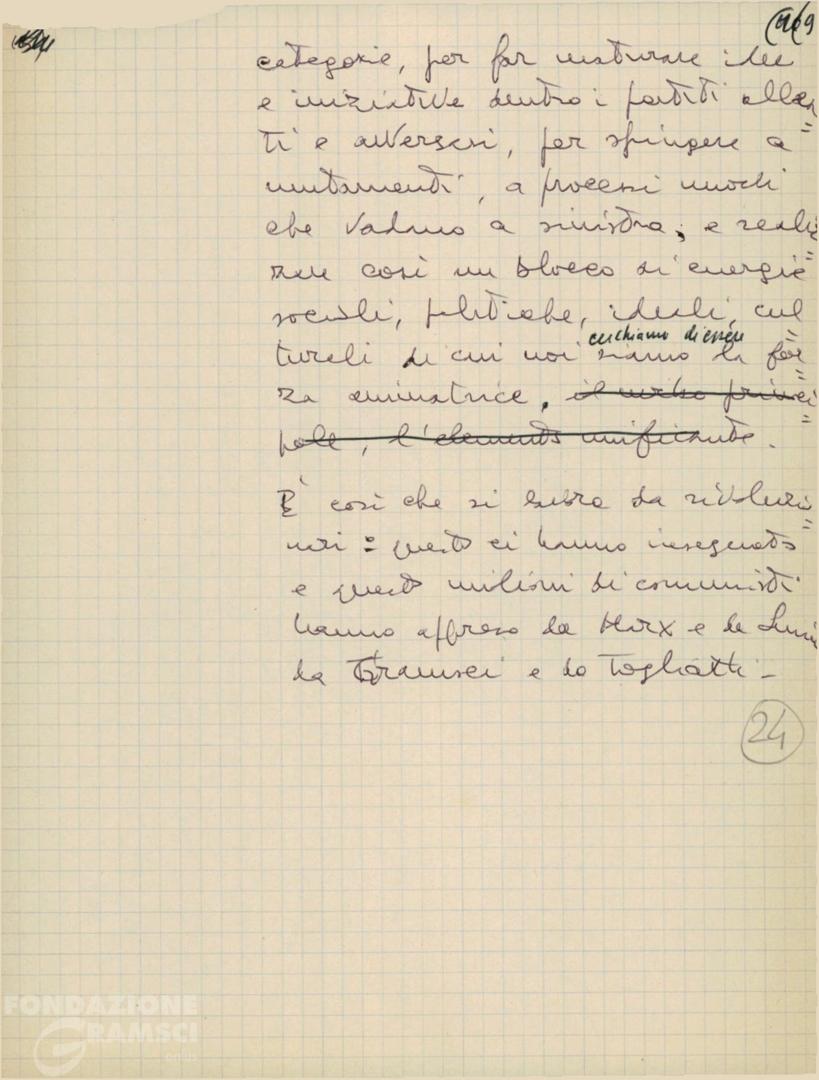 categorie, per far maturare idee
e iniziative dentro i partiti allea=
ti e avversari, per spingere a
mutamenti, a processi nuovi
che vadano a sinistra; e realiz=
zare così un blocco di energie
sociali, politiche, ideali, cul=
cerchiamo di essere
turali di cui noi siamo la for=
za animatrice. il nerbo princi=
pale, l'elemento unificante.
È così che si lavora da rivoluzio=
nari: questo ci hanno insegnato
e questo milioni di comunisti
hanno appreso da Marx e da Lenin
da Gramsci e da Togliatti –
24
FONDAZIONE
GRAMSCI
onlus